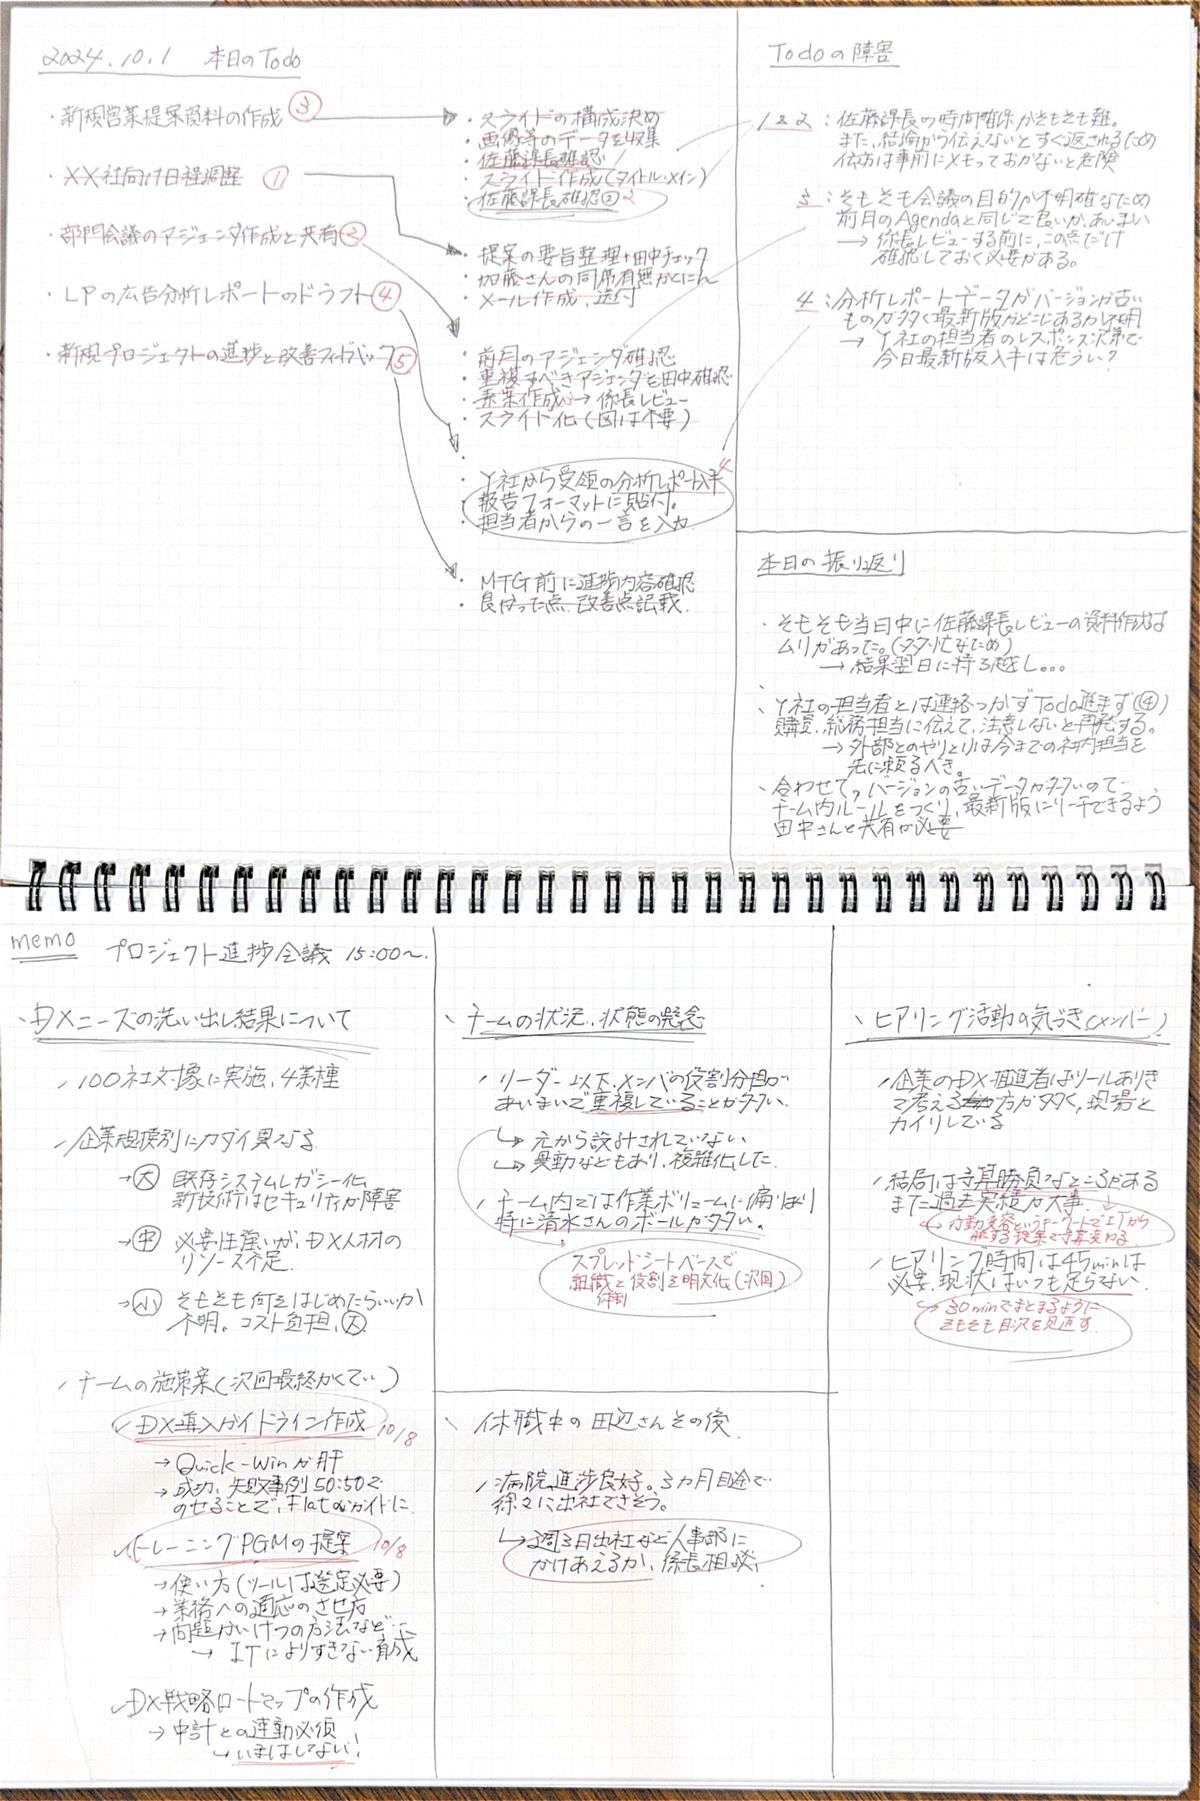 2024.10.1 本日のTodo
・新規営業提案資料の作成 ③
・××社向け日程調整 ①
・部門会議のアジェンダ作成と共有 ②
・LPの広告分析レポートのドラフト ④
・新規プロジェクトの進捗と改善フィードバック ⑤
・スライドの構成決め
・画像等のデータを収集
・佐藤課長確認 1
・スライド作成(タイトル・メイン)
・佐藤課長確認② 2
・提案の要旨整理+田中チェック
・加藤さんの同席有無かくにん
・メール作成、送付
・前月のアジェンダ確認
・重複すべきアジェンダを田中確認
・素案作成→係長レビュー
・スライド化(図は不要)
・Y社から受領の分析レポート入手 4
・報告フォーマットに貼付。
・担当者からの一言を入力
・MTG前に進捗内容確認
・良かった点、改善点記載。
Todoの障害
1&2:佐藤課長の時間確保がそもそも難。
また、結論から伝えないとすぐ返されるため
伝え方は事前にメモっておかないと危険
3:そもそも会議の目的が不明確なため
前月のAgendaと同じで良いか、あいまい
→係長レビューする前に、この点だけ
確認しておく必要がある。
4:分析レポートデータがバージョンが古い
ものが多く最新版がどこにあるか不明
→Y社の担当者のレスポンス次第で
今日最新版入手は危うい?
本日の振り返り
・そもそも当日中に佐藤課長レビューの資料作成は
ムリがあった。(多忙なため)
→結果翌日に持ち越し。。。
、Y社の担当者とは連絡つかずTodo進まず(④)
購買、総務担当に伝えて、注意しないと再発する。
→外部とのやりとりは今までの社内担当を
先に頼るべき。
、合わせて、バージョンの古いデータが多いので
チーム内ルールをつくり、最新版にリーチできるよう
田中さんと共有が必要
memo プロジェクト進捗会議 15:00〜
、DXニーズの洗い出し結果について
✓100社対象に実施、4業種
✓企業規模別にカダイ異なる
→㊅ 既存システムレガシー化
新技術はセキュリティが障害
→㊥ 必要性強いが、DX人材の
リソース不足
→小 そもそも何をはじめたらいいか
不明。コスト負担、大
✓チームの施策案(次回最終かくてい)
✓DX導入ガイドライン作成 10/8
→Quick-Winが肝
→成功、失敗事例50:50で
のせることで、Flatなガイドに
✓トレーニングPGMの提案 10/8
→使い方(ツールは選定必要)
→業務への適応のさせ方
→問題かいけつの方法など
→ITによりすぎない育成
✓DX戦略ロードマップの作成
→中計との連動必須
→いまはしてない!
、チームの状況、状態の懸念
✓リーダー以下、メンバの役割分担が
あいまいで重複していることが多い。
→元から設計されていない
→異動などもあり、複雑化した
✓チーム内では作業ボリュームに偏りあり
特に清水さんのボールが多い。
スプレッドシートベースで
組織と役割を明文化(次回)
体制
、休職中の田辺さんその後
✓病院、進渉良好。3ヵ月目途で
徐々に出社できそう。
→週3日出社など人事部に
かけあえるか、係長相談!
、ヒアリング活動の気づき(メンバー)
✓企業のDX推進者はツールありき
で考える方が多く、現場と
カイリしている
✓結局は予算勝負なところがある
また過去実績が大事。
→行動変容というキーワードでITから
脱する提案で予算変わる
✓ヒアリング時間は45minは
必要。現状はいつも足らない
→30minでまとまるように
そもそも目次を見直す